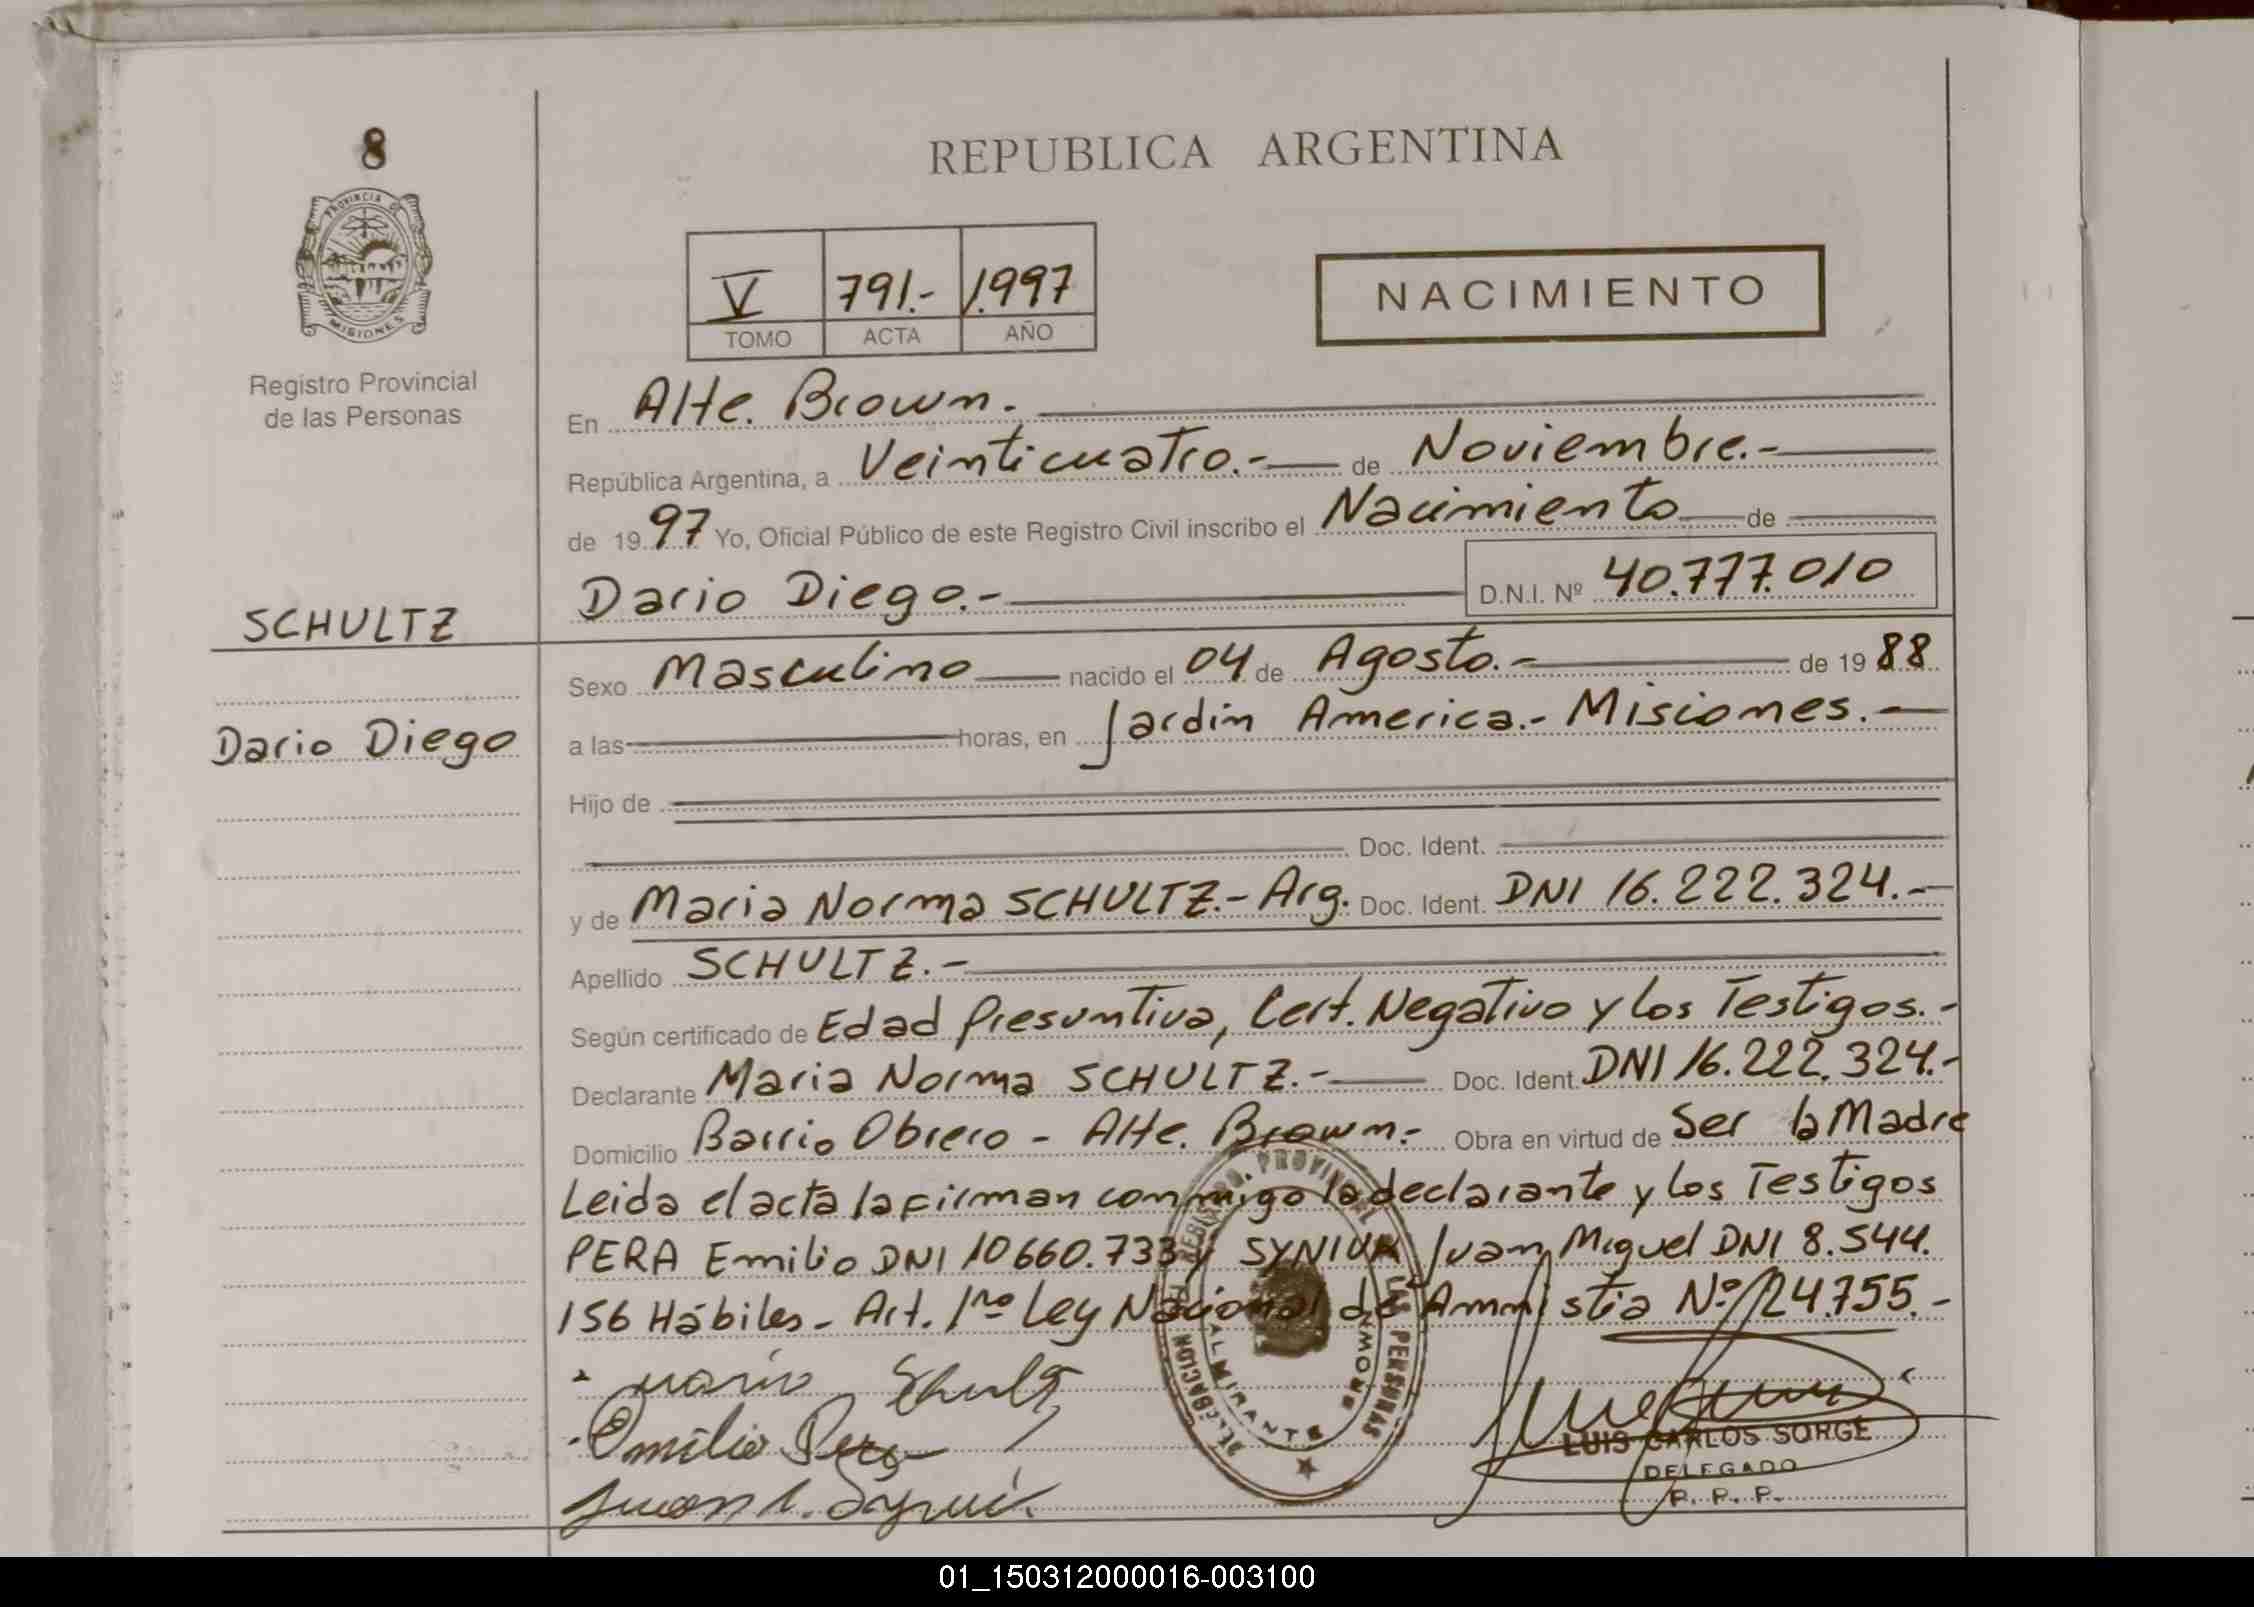 8
REPUBLICA ARGENTINA
PROVINCIA DE
MISIONES
V 791.- 1.997
TOMO ACTA AÑO
NACIMIENTO
Registro Provincial
de las Personas
En Alte. Brown.
República Argentina, a Veinticuatro.- de Noviembre.-
de 1997 Yo, Oficial Público de este Registro Civil inscribo el Nacimiento de
Dario Diego.- D.N.I. Nº 40.777.010
SCHULTZ
Sexo Masculino nacido el 04 de Agosto.- de 1988
Dario Diego
a las horas, en Jardin America.- Misiones.-
Hijo de
Doc. Ident.
y de Maria Norma SCHULTZ.- Arg. Doc. Ident. DNI 16.222.324.-
Apellido SCHULTZ.-
Según certificado de Edad Presuntiva, Cert. Negativo y los Testigos.-
Declarante Maria Norma SCHULTZ.- Doc. Ident. DNI 16.222.324.-
Domicilio Barrio Obrero - Alte. Brown.- Obra en virtud de Ser la Madre
Leida el acta la firman conmigo la declarante y los Testigos
PERA Emilio DNI 10660.733 y Juan Miguel DNI 8.544.
156 Hábiles - Art. 1ro Ley Nacional de Amnistia Nº 24.755.-
Emilio Pera
REGISTRO PROVINCIAL DE LAS PERSONAS
DELEGACION
ALMIRANTE BROWN
LUIS CARLOS SORGE
DELEGADO
R. P. P.
01_150312000016-003100